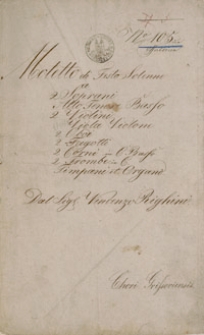 No 105.
Motetto de Festo Solenne
a
2 Soprani
Alto Tenore Basso
2 Violini
Viola Violone
2 Oboi
2 Fagotti
2 Corni
2 Trombe
Timpani et Organo
Del Sigl Vincenzo Righini
Chori